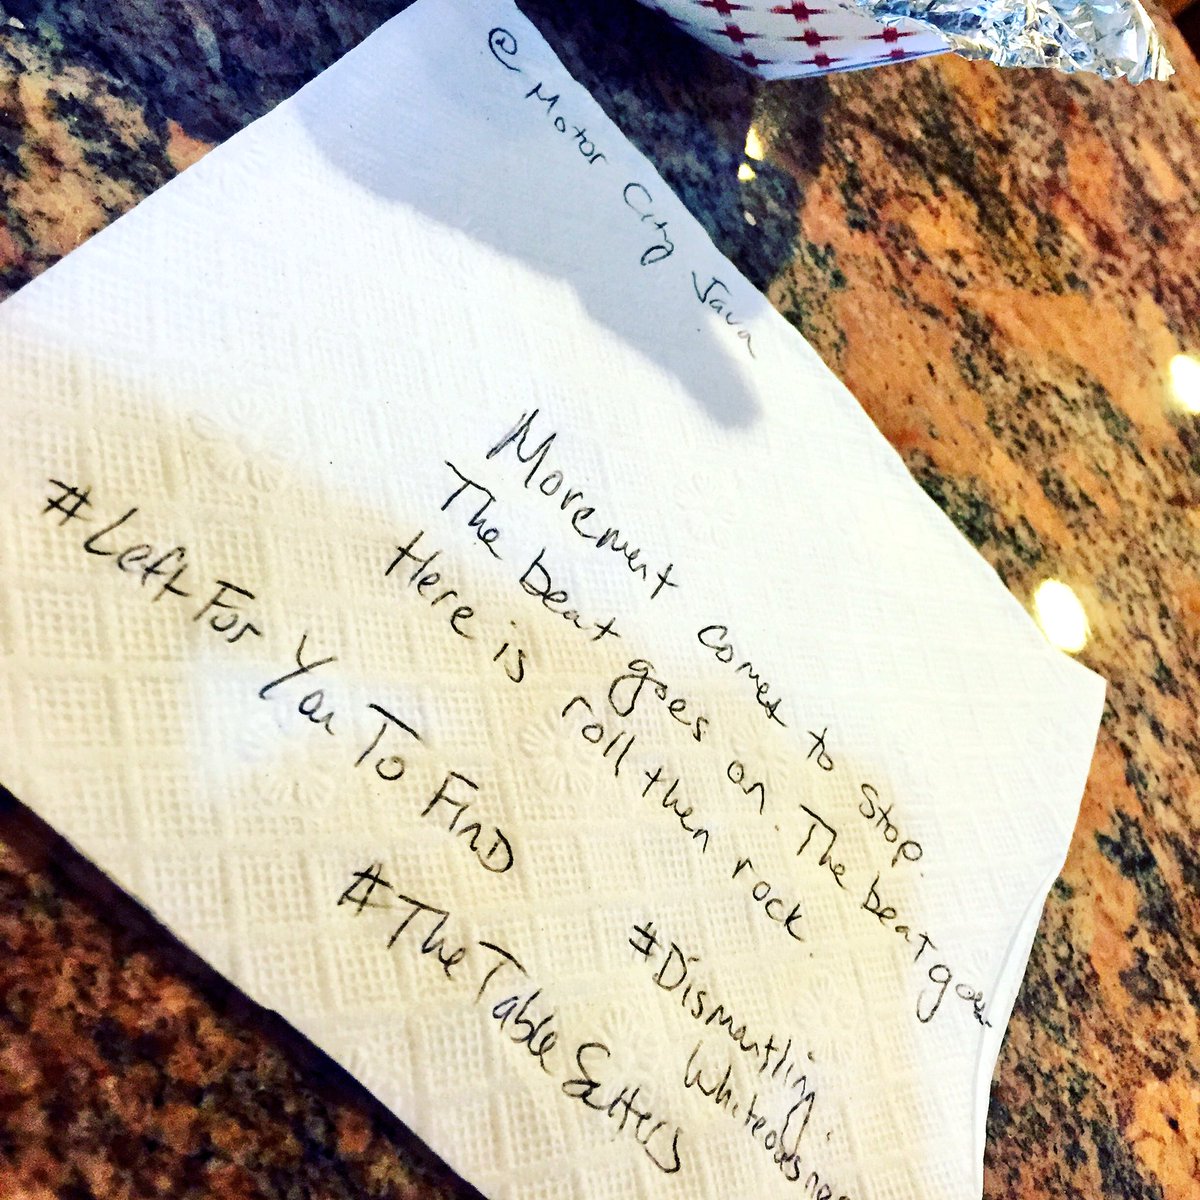 @ Motor City Java
Movement comes to stop.
The beat goes on. The beat goes
Here is roll then rock
#Left For You To Find
#Dismantling
#The Table Setters